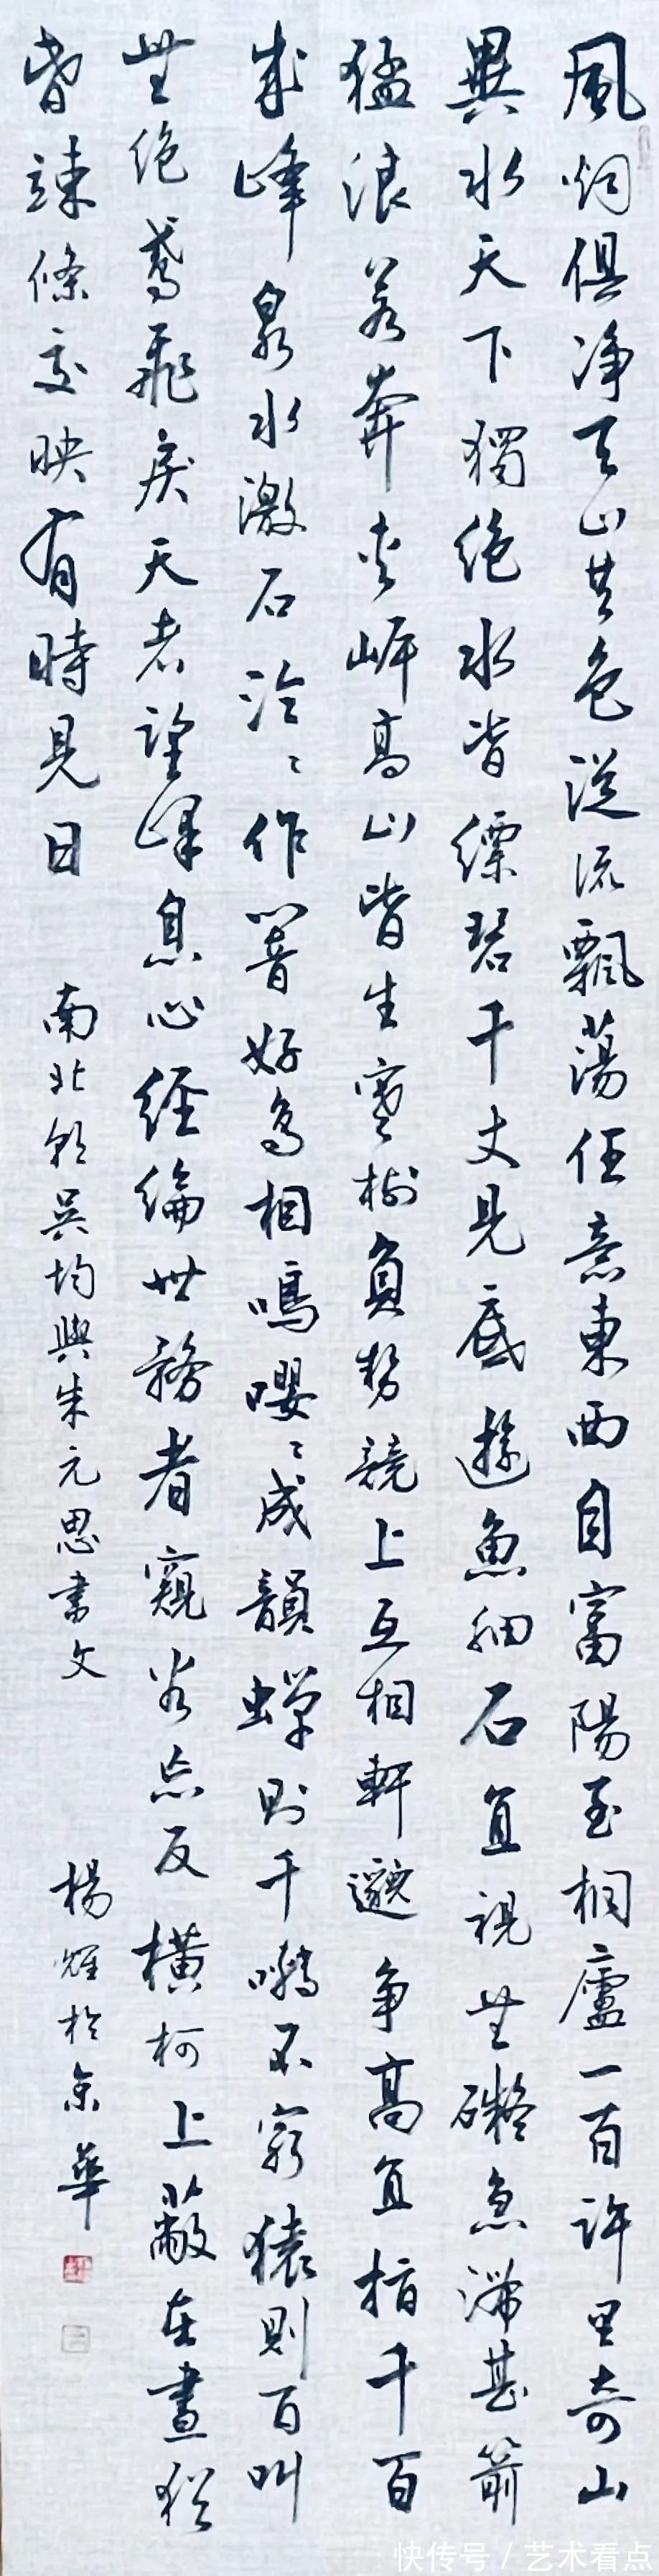 風烟俱净天山共色從流飄蕩任意東西自富陽至桐廬一百許里奇山
異水天下獨絕水皆縹碧千丈見底遊魚細石直視無礙急湍甚箭
猛浪若奔夾岸高山皆生寒樹負勢競上互相軒邈爭高直指千百
成峰泉水激石泠〻作響好鳥相鳴嚶〻成韻蟬則千囀不窮猿則百叫
無絕鳶飛戾天者望峰息心經綸世務者窺谷忘反橫柯上蔽在晝猶
昏疎條交映有時見日 南北朝吳均與朱元思書文 楊耀於京華
快传号 / 艺术看点